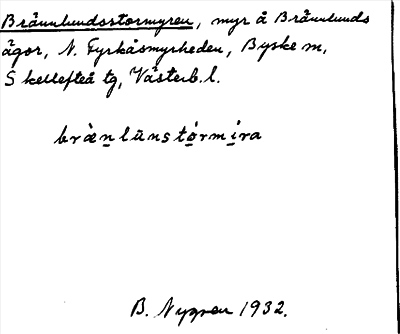 Brännlundsstormyren, myr å Brännlunds
ägor, N. Fyrkåsmyrheden, Byske sn,
Skellefteå tg, Västerb.l.
brænlünstórmira
B. Nygren 1932.